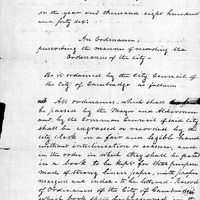 in the year one thousand eight hundred
and forty six:
An Ordinance,
prescribing the manner of recording the
Ordinances of the city.
Be it ordained by the City Council of
the City of Cambridge as follows
All ordinances, which shall
be passed by the Mayor and Aldermen
and by the Common Council of said city
shall be engrossed or recorded by the
city clerk in a fair and legible hand
without interlineation or erasure, and
in the order in which they shall be passed
in a book to be kept for that purpose
made of strong linen paper, with proper
margins and index; to be lettered "Record
of Ordinances of the City of Cambridge
which book shall be preserved in the